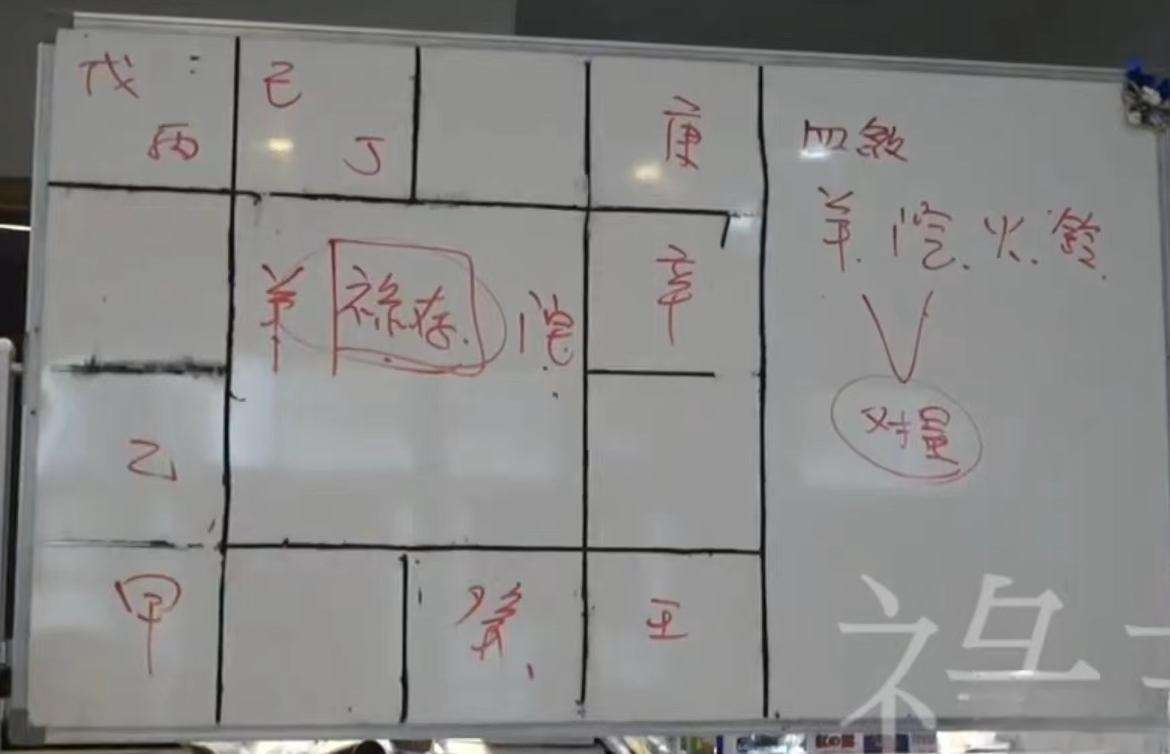 戊
丙
己
丁
庚
四煞
羊.陀.火.鈴.
羊 禄存. 陀
辛
对星
乙
甲
癸
壬
禄